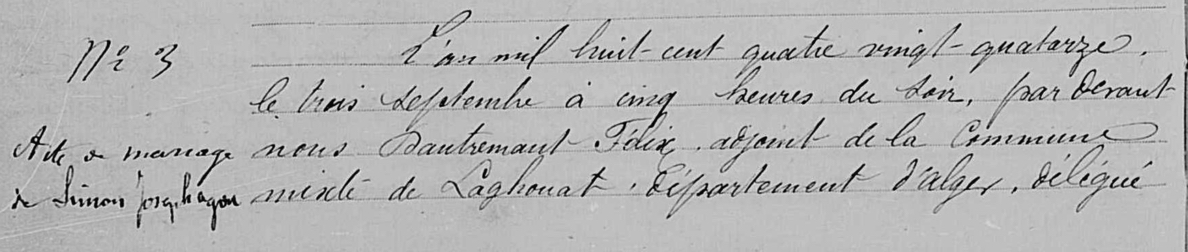 N° 3
Acte de mariage
de Simon
L'an mil huit cent quatre vingt-quatorze,
le trois septembre à cinq heures du soir, par devant
nous Dautremant Félix, adjoint de la Commune
mixte de Laghouat, département d'alger, délégué